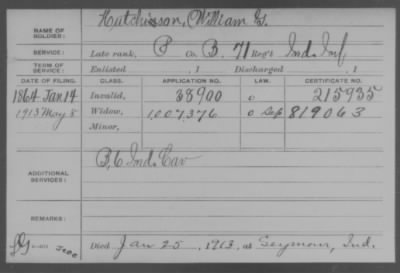 Hutchisson, William G.
NAME OF SOLDIER:
SERVICE: Late rank, P Co. B, 71 Reg't Ind. Inf.
TERM OF SERVICE: Enlisted , 1 Discharged , 1
DATE OF FILING. CLASS. APPLICATION NO. LAW. CERTIFICATE NO.
1864 Jan 14 Invalid, 38900 o 215935
1913 May 8 Widow, 1,007,376 o Sep 819063
Minor,
B, 6 Ind. Cav
ADDITIONAL SERVICES:
REMARKS:
Died Jan 25, 1913, at Seymour, Ind.